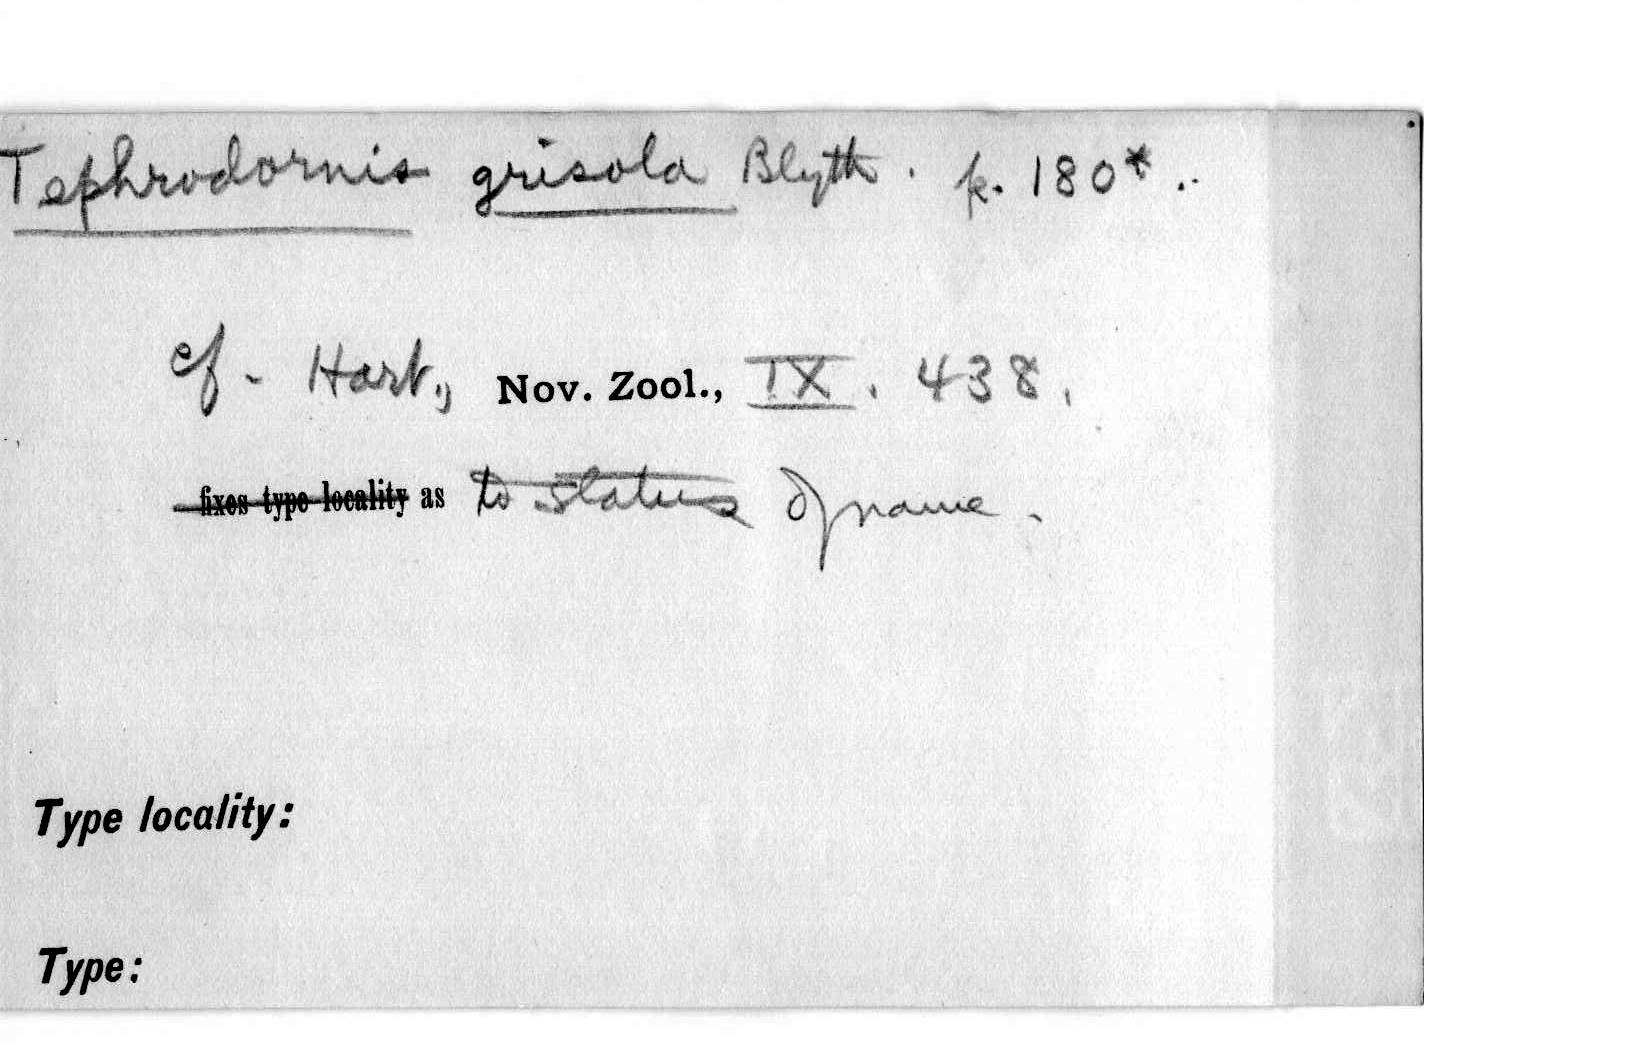 Tephrodornis grisola Blyth. p. 180* ..
cf. Hart., Nov. Zool., IX. 438.
fixes type locality as to status of name.
Type locality:
Type: